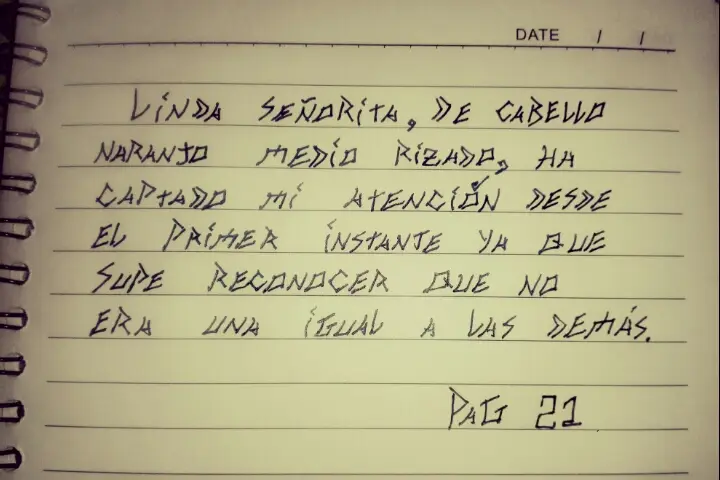 DATE / /
LiNDA SEÑORitA, DE CABELLO
NARANJO MEDIO RiZADO, HA
CAPtADO Mi AtENCiÓN DESDE
EL PRiMER iNStANtE YA QUE
SUPE RECONOCER QUE NO
ERA UNA iGUAL A LAS DEMÁS.
PAG 21